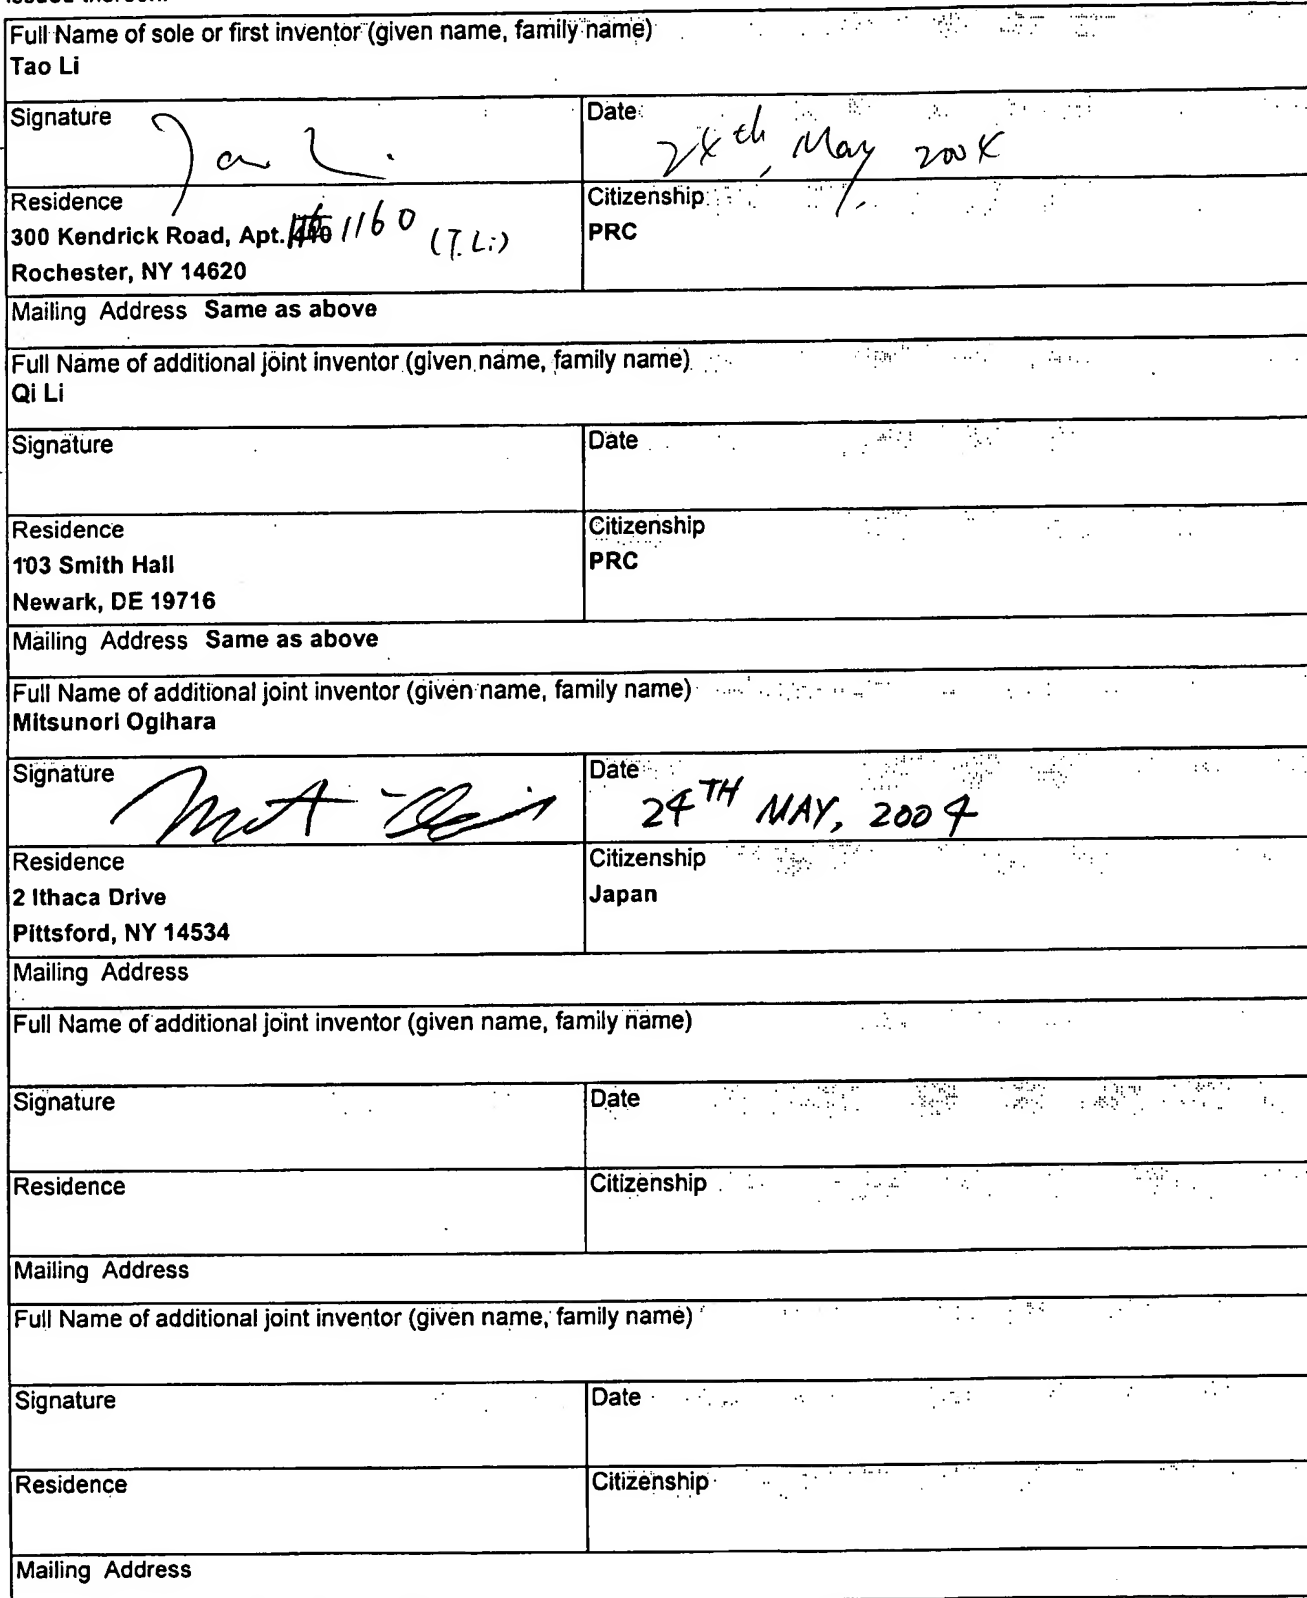 Full Name of sole or first inventor (given name, family name)
Tao Li
Signature
Tao Li
Date
24th, May, 2004
Residence
300 Kendrick Road, Apt. 1160 (T. Li)
Rochester, NY 14620
Citizenship
PRC
Mailing Address Same as above
Full Name of additional joint inventor (given name, family name)
Qi Li
Signature
Date
Residence
103 Smith Hall
Newark, DE 19716
Citizenship
PRC
Mailing Address Same as above
Full Name of additional joint inventor (given name, family name)
Mitsunori Ogihara
Signature
Date
24TH MAY, 2004
Residence
2 Ithaca Drive
Pittsford, NY 14534
Citizenship
Japan
Mailing Address
Full Name of additional joint inventor (given name, family name)
Signature
Date
Residence
Citizenship
Mailing Address
Full Name of additional joint inventor (given name, family name)
Signature
Date
Residence
Citizenship
Mailing Address